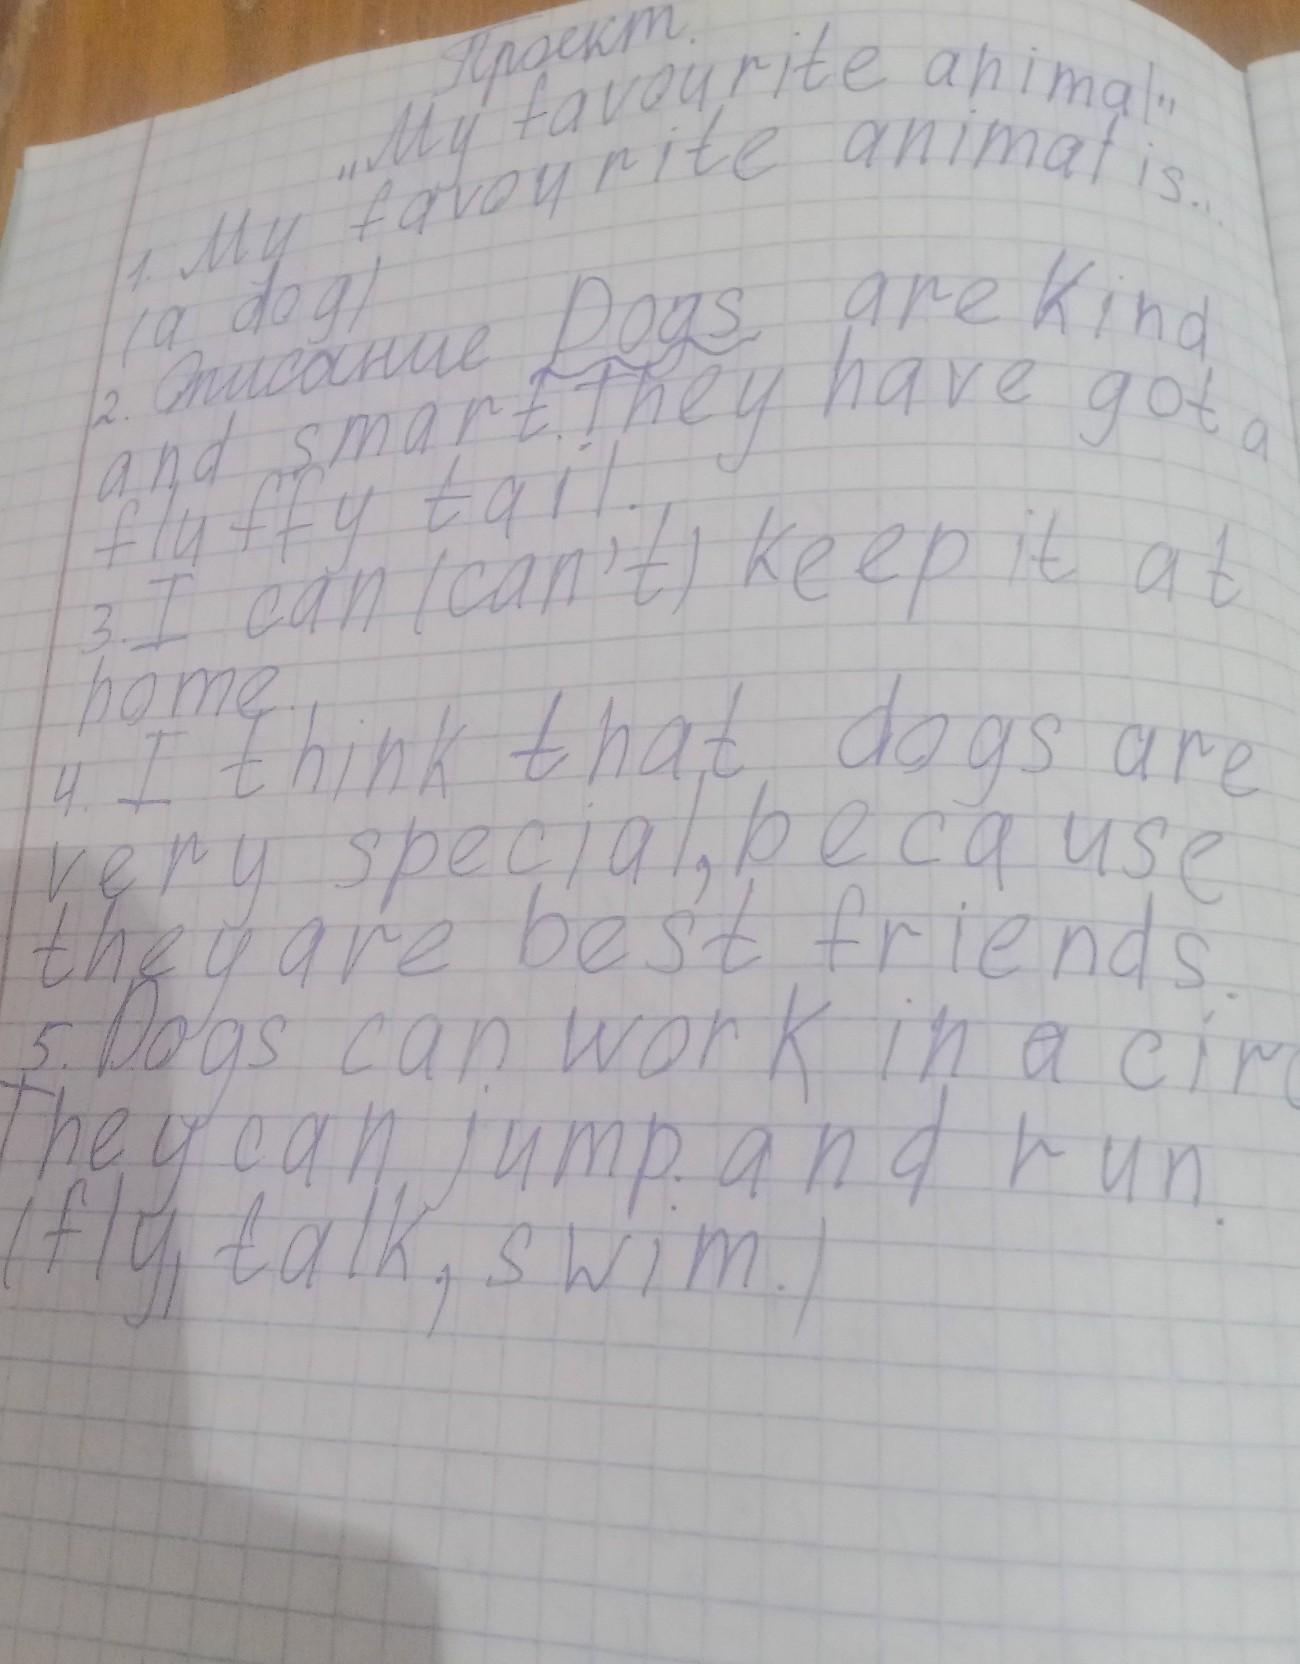 Проект.
„My favourite animal"
1. My favourite animal is...
(a dog)
2. Описание Dogs are kind
and smart. They have got a
fluffy tail.
3. I can (can't) keep it at
home.
4. I think that dogs are
very special, because
they are best friends.
5. Dogs can work in a circ
They can jump and run.
(fly, talk, swim.)